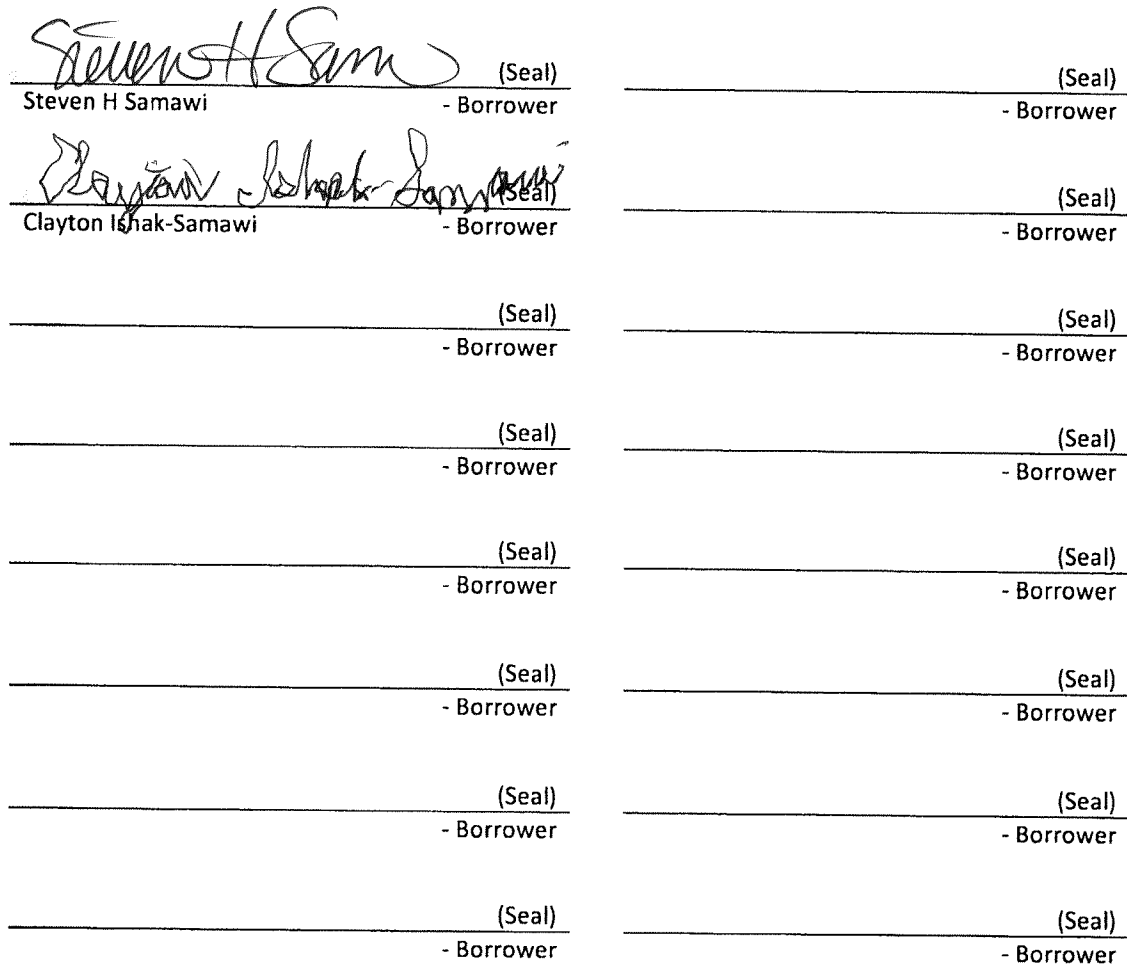 Steven H Sam (Seal)
Steven H Samawi - Borrower
Clayton Ishak-Samawi (Seal)
Clayton Ishak-Samawi - Borrower
(Seal)
- Borrower
(Seal)
- Borrower
(Seal)
- Borrower
(Seal)
- Borrower
(Seal)
- Borrower
(Seal)
- Borrower
(Seal)
- Borrower
(Seal)
- Borrower
(Seal)
- Borrower
(Seal)
- Borrower
(Seal)
- Borrower
(Seal)
- Borrower
(Seal)
- Borrower
(Seal)
- Borrower